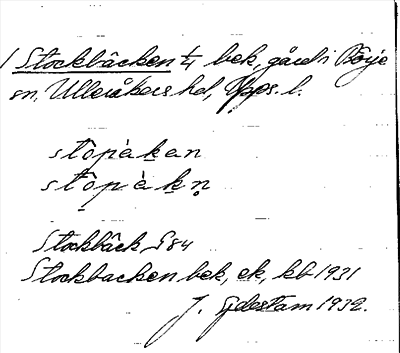 Stockbäcken 1/4 bek, gård i Börje
sn, Ulleråkers hd, Upps. l.
stôpàkan
stôpàkn̥
Stockbäck G84
Stockbacken bek, ek, kb 1931
J. Gdestam 1932.